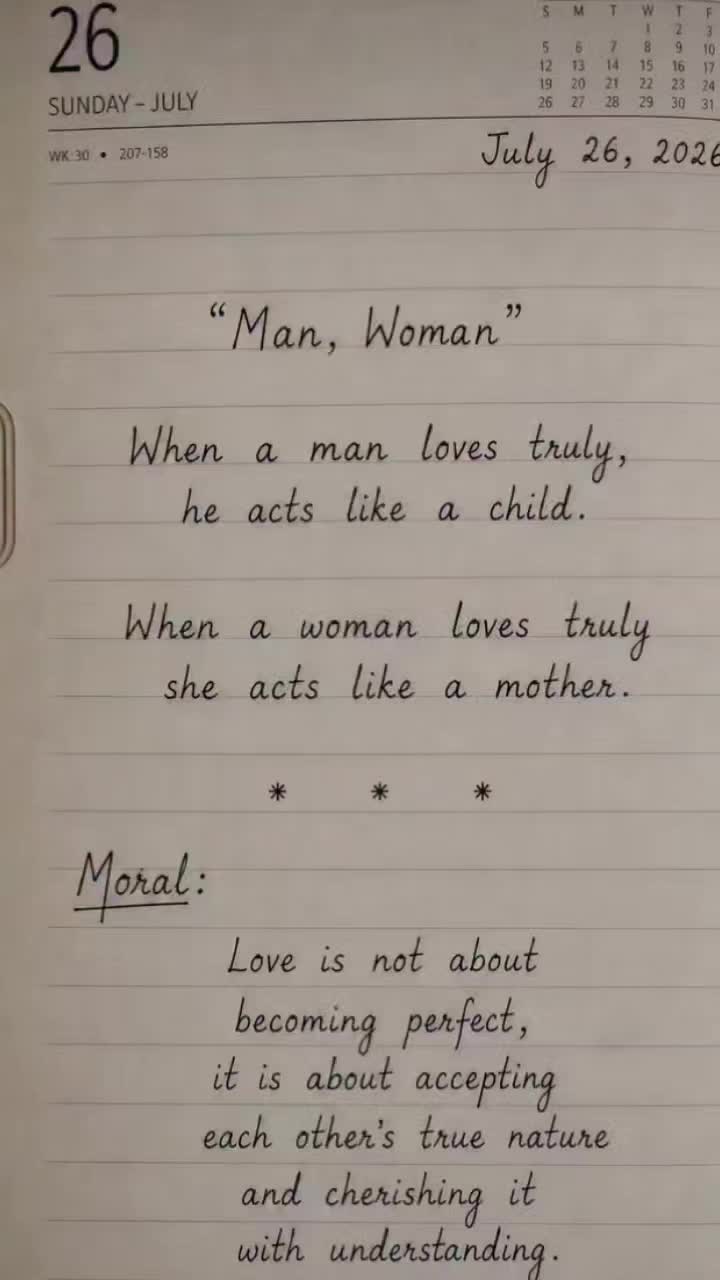 26
SUNDAY – JULY
S M T W T F
1 2 3
5 6 7 8 9 10
12 13 14 15 16 17
19 20 21 22 23 24
26 27 28 29 30 31
WK 30 • 207-158
July 26, 2026
“Man, Woman”
When a man loves truly,
he acts like a child.
When a woman loves truly
she acts like a mother.
* * *
Moral:
Love is not about
becoming perfect,
it is about accepting
each other's true nature
and cherishing it
with understanding.